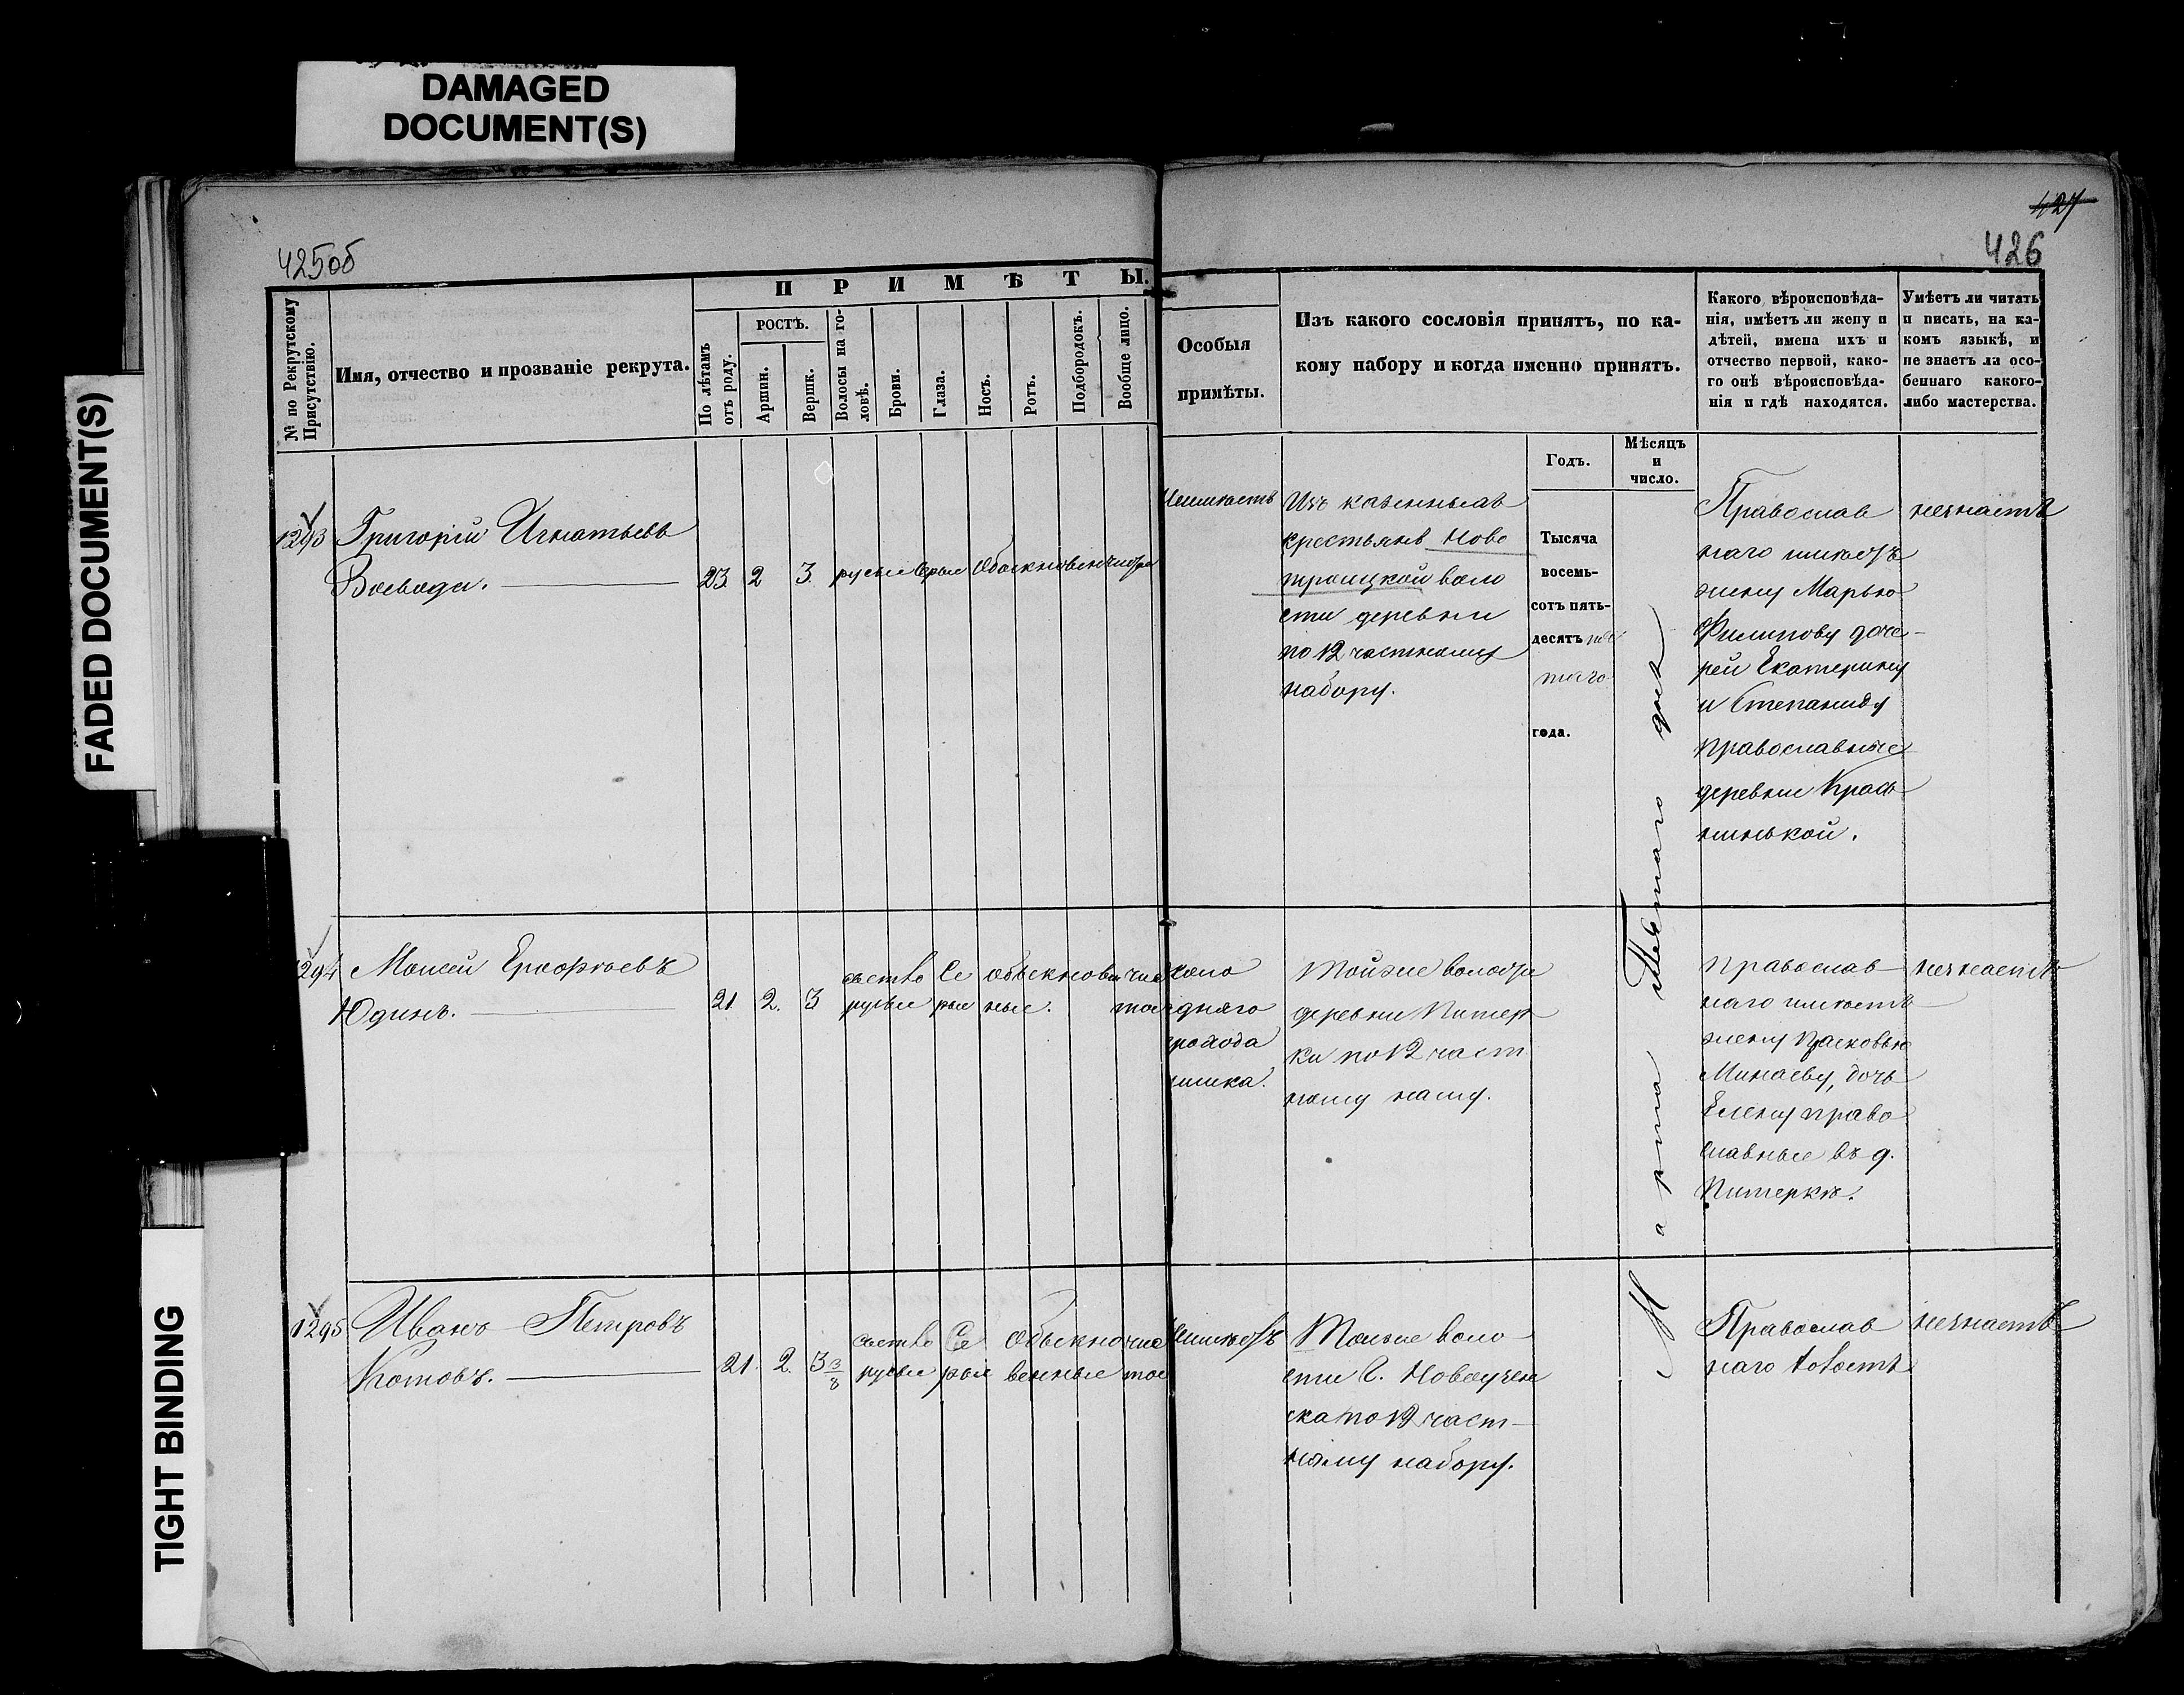 DAMAGED
DOCUMENT(S)
FADED DOCUMENT(S)
TIGHT BINDING
425об
427
426
№ по Рекрутскому
Присутствію.
Имя, отчество и прозваніе рекрута.
ПРИМѢТЫ.
По лѣтамъ
отъ роду.
РОСТЪ.
Аршин.
Вершк.
Волосы на го-
ловѣ.
Брови.
Глаза.
Носъ.
Ротъ.
Подбородокъ.
Вообще лицо.
Особыя
примѣты.
Изъ какого сословія принятъ, по ка-
кому набору и когда именно принятъ.
Годъ.
Мѣсяцъ
и
число.
Какого вѣроисповѣда-
нія, имѣетъ ли жену и
дѣтей, имена ихъ и
отчество первой, како-
го онѣ вѣроисповѣда-
нія и гдѣ находятся.
Умѣетъ ли читать
и писать, на ка-
комъ языкѣ, и
не знаетъ ли осо-
беннаго какого-
либо мастерства.
1293
Григорій Игнатьевъ
Воевода.
23 2 3 русые Серые Обыкновен
Изъ казенныхъ
крестьянъ Ново
троицкой воло
сти деревни
по 12 частному
набору.
Тысяча
восемь-
сотъ пять-
десятъ
года.
Марта Шестаго дня
Православ
наго имѣетъ
жену Марью
Филипову доче-
рей Екатерину
и Степаниду
православные
деревни Крась
нинькой.
незнаетъ
1294
Моисей Ерофѣевъ
Юдинъ.
21 2. 3 светло русые Се рые обыкновен ные. чис тое
Тойже волости
деревни Питер
ки по 12 част
ному наму.
Православ
наго имѣетъ
жену Прасковью
Минаеву, дочь
Елену право
славные въ д.
Питеркѣ.
незнаетъ
1295
Иванъ Петровъ
Котовъ.
21. 2. 3 3/8 светло русые Се рые Обыкно венные чис тое
Неимѣетъ
Тойже воло
сти С. Новоузен
ска по 12 част-
ному набору.
Православ
наго холостъ
незнаетъ